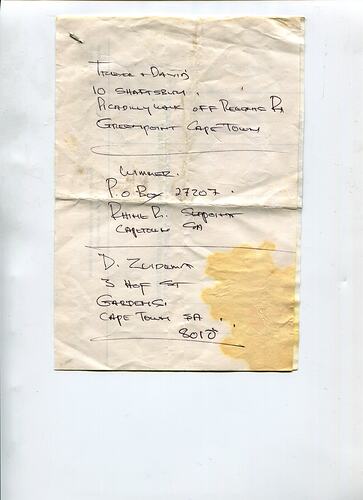 Trevor + David
10 Shaftsbury.
Picadilly Walk off Regent Rd
Greenpoint Cape Town
Wimmer.
P.O Box 27207.
Rhine R. Seapoint
Capetown SA
D. Zuidema
3 Hof St
Gardens.
Cape Town SA
8018